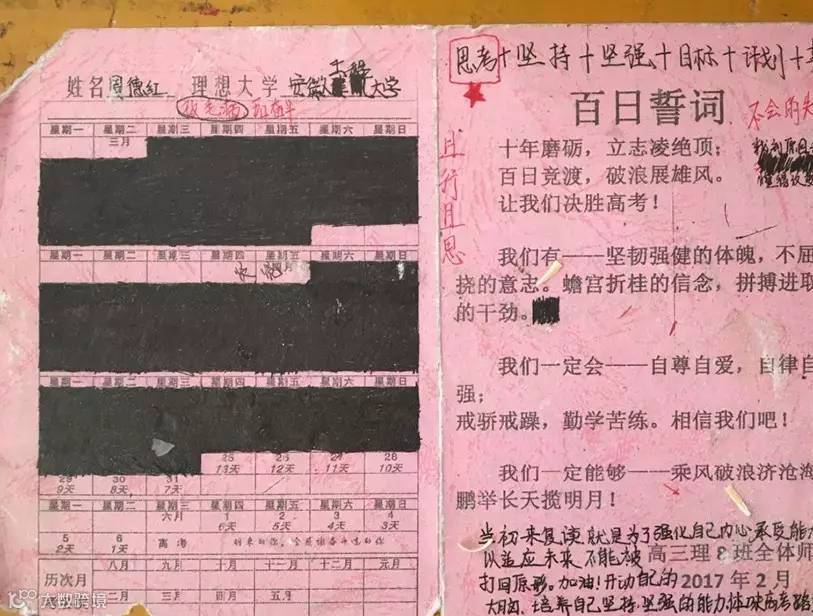 姓名 周德红 理想大学 安徽工程大学
星期一 星期二 星期三 星期四 星期五 星期六 星期日
三月
星期一 星期二 星期三 星期四 星期五 星期六 星期日
月
星期一 星期二 星期三 星期四 星期五 星期六 星期日
25 26 27 28
13天 12天 11天 10天
29 30 31
9天 8天 7天
星期一 星期二 星期三 星期四 星期五 星期六 星期日
六月 1 2 3 4
6天 5天 4天 3天
5 6 高考
2天 1天
八月 九月 十月 十一月 十二月 元月
历次月
二月 三月 四月 五月
思考+坚持+坚强+目标+计划+
百日誓词
不会的
且行且思
十年磨砺,立志凌绝顶;
百日竞渡,破浪展雄风。
让我们决胜高考!
我们有——坚韧强健的体魄,不屈
挠的意志。蟾宫折桂的信念,拼搏进取
的干劲。
我们一定会——自尊自爱,自律自
强;
戒骄戒躁,勤学苦练。相信我们吧!
我们一定能够——乘风破浪济沧海
鹏举长天揽明月!
当初来复读就是为了强化自己内心承受能
以适应未来不能被
高三理8班全体师
打回原形。加油!开动自己的
2017年2月
培养自己坚持,坚强的能力
大数跨境